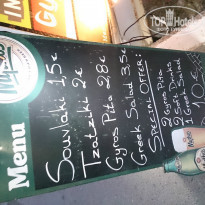 Menu
Souvlaki 1,5€
Tzatziki 2€
Gyros Pita 2,8€
Greek Salad 3,5€
SPECIAL OFFER:
2 Gyros Pita
2 Soft Drinks
1 Greek Salad
10€